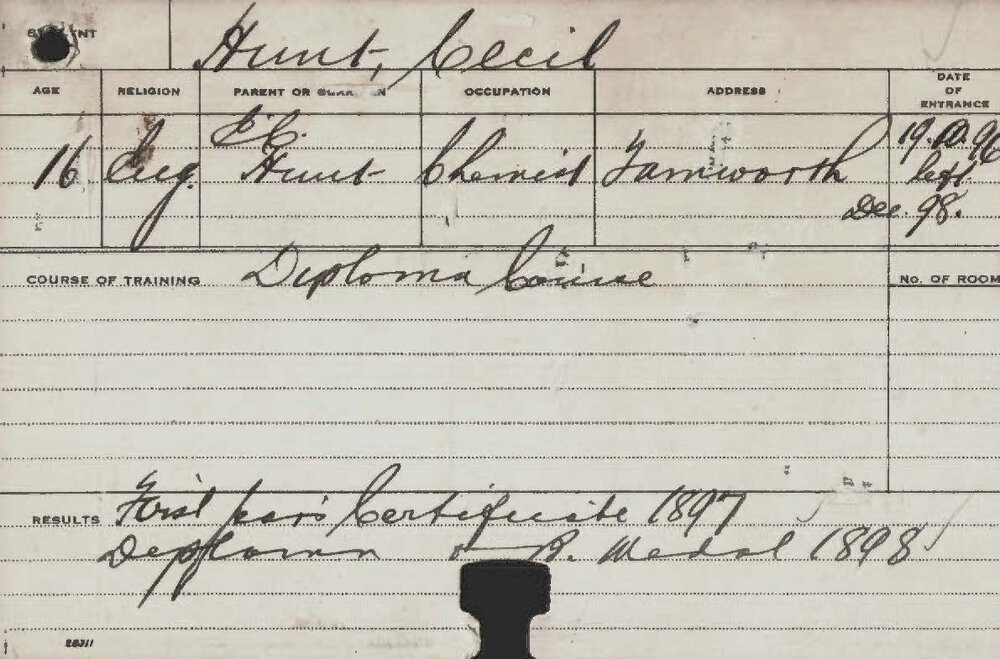 STUDENT Hunt, Cecil
AGE RELIGION PARENT OR GUARDIAN OCCUPATION ADDRESS DATE OF ENTRANCE
16 Hunt Chemist Tamworth 19.10.96
left
Dec. 98.
COURSE OF TRAINING Diploma Course No. OF ROOM
RESULTS First Year's Certificate 1897
Diploma B. Medal 1898